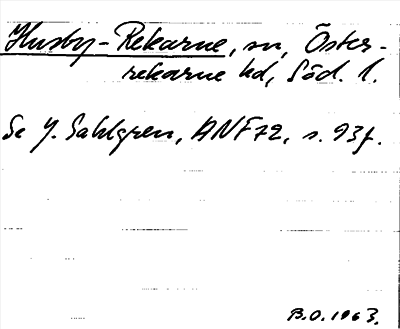 Husby-Rekarne, sn, Öster-
rekarne hd, Söd. l.
Se J. Sahlgren, ANF 72, s. 93f.
B.O. 1963.